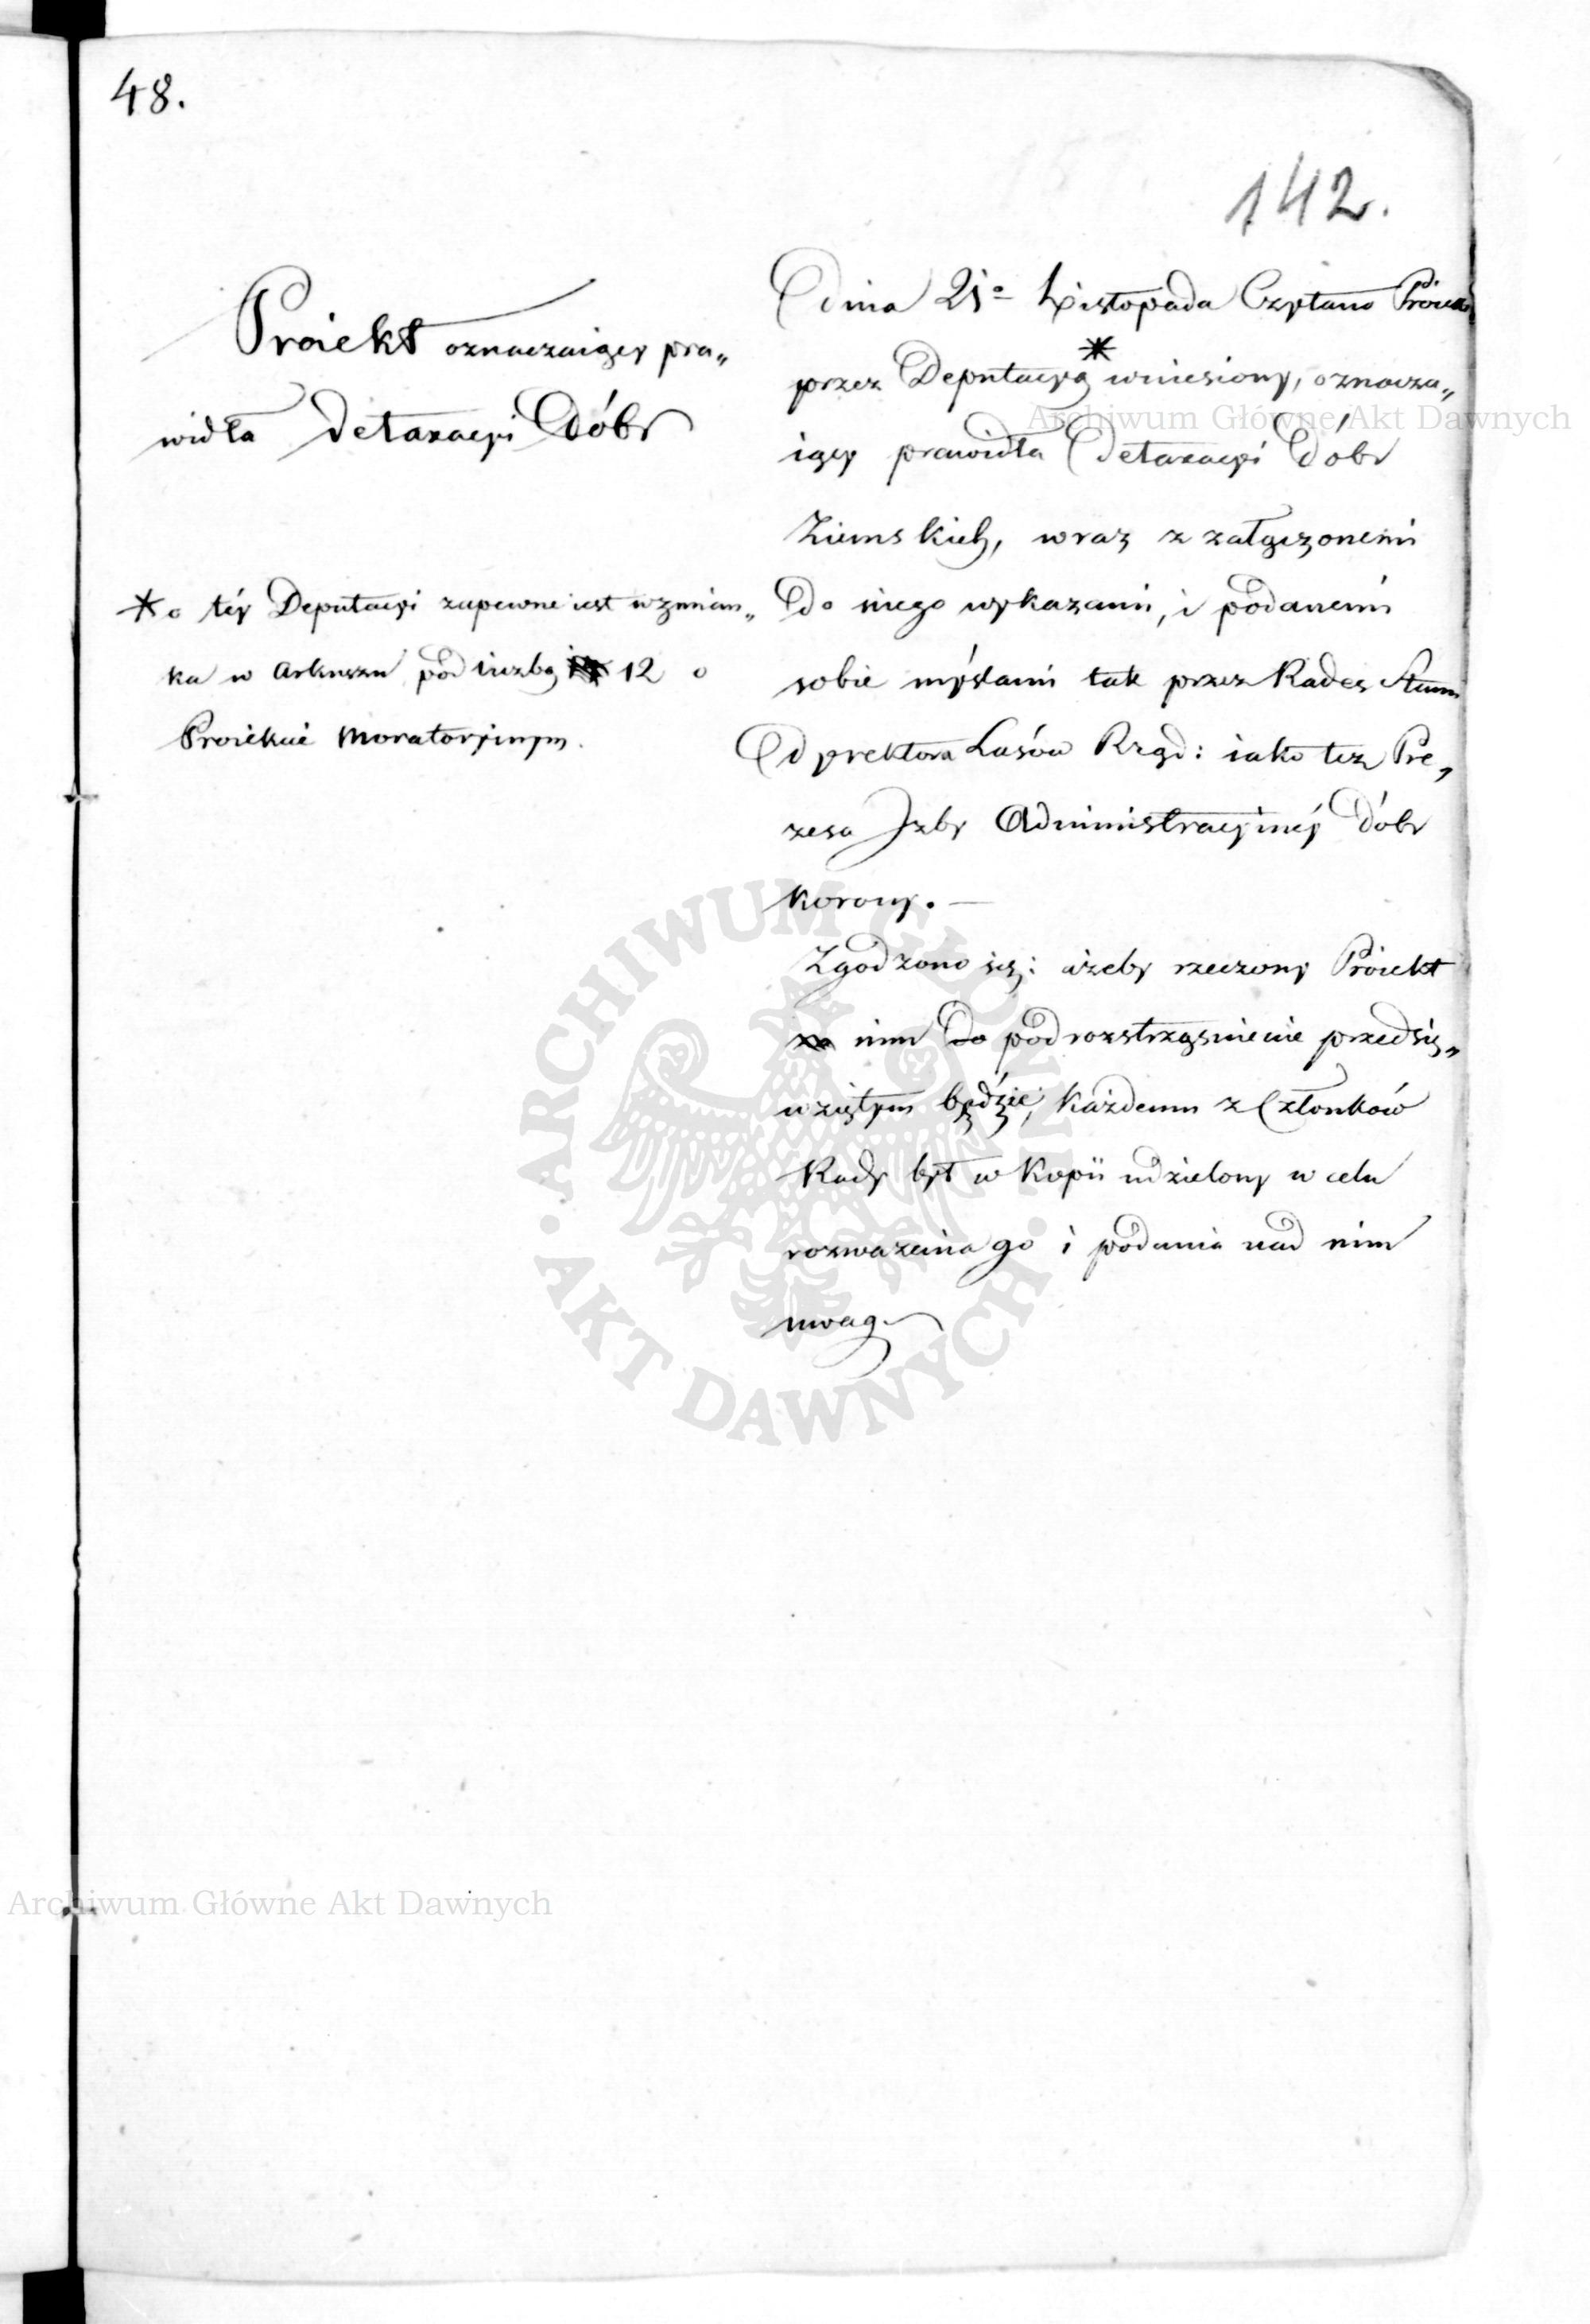 48.
142.
Proiekt oznaczaiący pra„
widła detaxacyi Dóbr
* o téy Deputacyi zapewne iest wzmian„
ka w Arkuszu pod liczbą 12 o
Proiekcie Moratoryinym.
Dnia 21º Listopada Czytano Proiekt
przez Deputacyą * wniesiony, oznacza„
iący prawidła Detaxacyi Dóbr
Ziemskich, wraz z załączonemi
do niego wykazami, i podanemi
sobie myślami tak przez Radcę Stanu
Dyrektora Lasów Rząd: iako też Pre„
zesa Jzby Administracyinéy Dóbr
Korony. —
Zgodzono się: ażeby rzeczony Proiekt
nim pod rozstrząśnienie przedsię„
wziętym będzie, każdemu z Członków
Rady był w Kopii udzielony w celu
rozważenia go i podania nad nim
uwag.
Archiwum Główne Akt Dawnych
ARCHIWUM GŁÓWNE · AKT DAWNYCH ·
Archiwum Główne Akt Dawnych